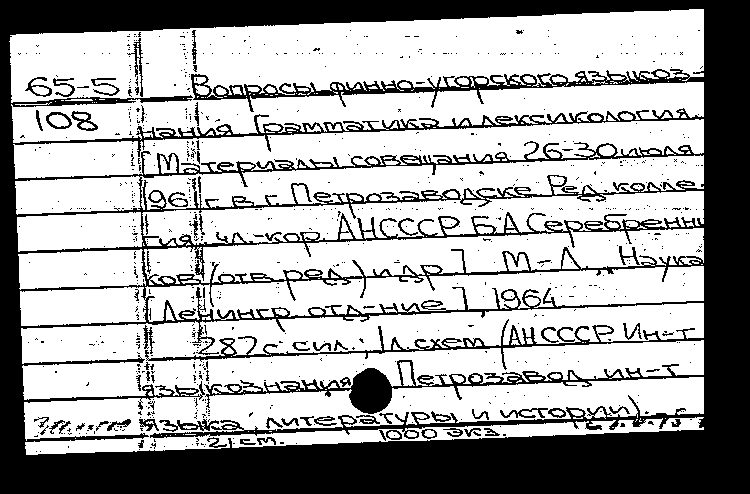 65-5 Вопросы финно-угорского языкоз-
108 нания Грамматика и лексикология.
[Материалы совещания 26-30 июля
1961 г. в г. Петрозаводске Ред. колле-
гия: чл.-кор. АН СССР Б.А. Серебренни
ков (отв. ред.) и др.] М.-Л., „Наука
[Ленингр. отд-ние], 1964
287 с. с ил.; 1 л. схем (АН СССР. Ин-т
языкознания. Петрозавод. ин-т
языка, литературы и истории).
21 см. 1000 экз.